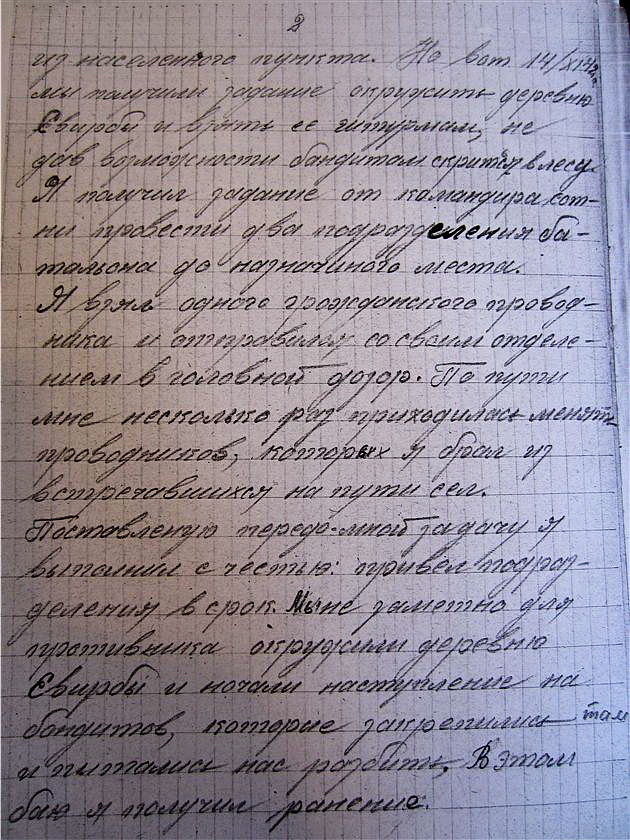 2
из населенного пункта. Но вот 14/XI 42г.
мы получили задание окружить деревню
Свирбы и взять ее штурмам, не
дав возможности бандитам скритя в лесу.
Я получил задание от командира сот-
ни провести два подразделения ба-
тальона до назначиного места.
Я взял одного гражданского провод-
ника и отправился со своим отделе-
нием в головной дозор. По пути
мне несколько раз приходилась менять
проводников, которых я брал из
встречавшихся на пути сел.
Поставленую передо-мной задачу я
выполнил с честью: привел подраз-
деления в срок. Мы не заметно для
противника окружили деревню
Свирбы и начали наступление на
бандитов, которие закрепились там
и питались нас разбить. В этом
баю я получил ранение.